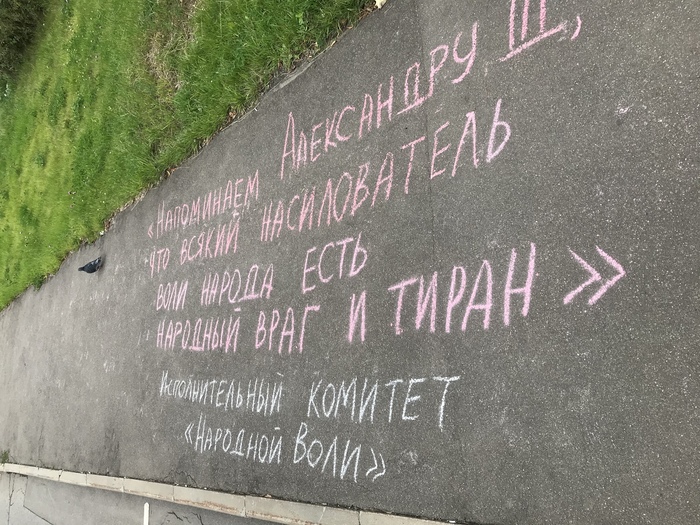 «Напоминаем Александру III,
что всякий насилователь
воли народа есть
народный враг и тиран»
Исполнительный комитет
«Народной Воли»